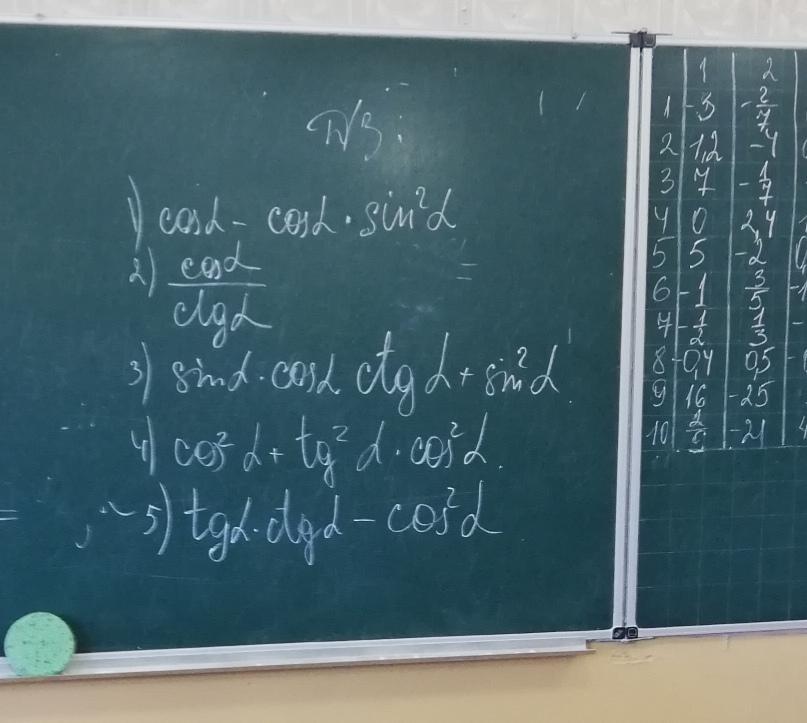 Д/З:
1) cosα - cosα · sin²α
2) cosα / ctgα =
3) sinα · cosα ctgα + sin²α
4) cos²α + tg²α · cos²α.
5) tgα · ctgα - cos²α
=
1 2
1 -3 -2/7
2 1,2 -4
3 7 -1/7
4 0 2,4
5 5 -2
6 -1 3/5
7 -1/2 1/3
8 -0,4 0,5
9 16 -25
10 -21